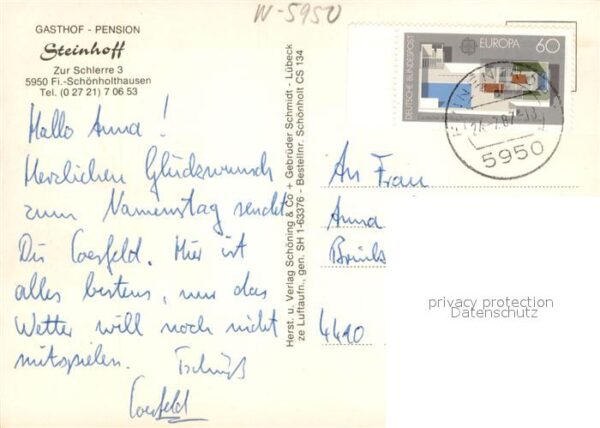 W-5950
GASTHOF - PENSION
Steinhoff
Zur Schlerre 3
5950 Fi.-Schönholthausen
Tel. (0 27 21) 7 06 53
Hallo Anna!
Herzlichen Glückwunsch
zum Namenstag sendet
Dir Coesfeld. Hier ist
alles bestens, nur das
Wetter will noch nicht
mitspielen. Tschüß
Coesfeld
Herst. u. Verlag Schöning & Co + Gebrüder Schmidt - Lübeck
ze Luftaufn., gen. SH 1-63376 - Bestellnr. Schönholt CS 134
DEUTSCHE BUNDESPOST
EUROPA 60
5950
An Frau
Anna
Brinks
4410
privacy protection
Datenschutz